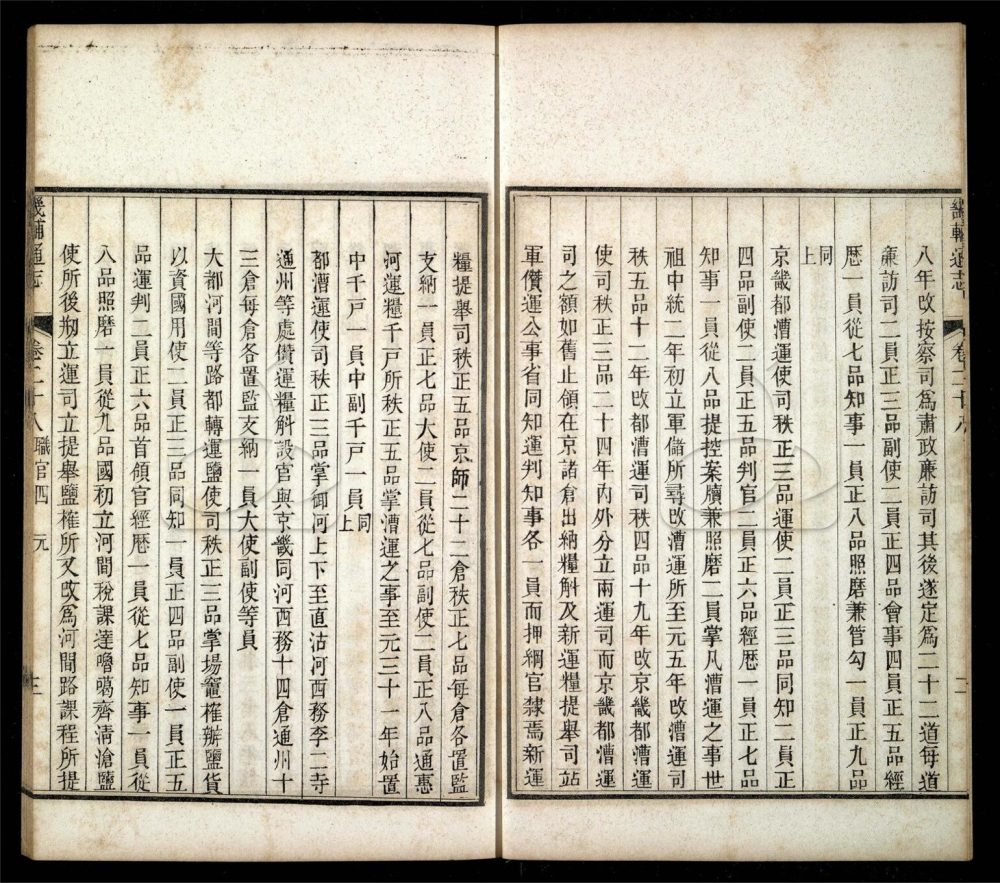 畿輔通志
卷二十八
八年改按察司爲肅政廉訪司其後遂定爲二十二道每道
廉訪司二員正三品副使二員正四品會事四員正五品經
歴一員從七品知事一員正八品照磨兼管勾一員正九品
同上
京畿都漕運使司秩正三品運使二員正三品同知二員正
四品副使二員正五品判官二員正六品經歴一員正七品
知事一員從八品提控案牘兼照磨二員掌凡漕運之事世
祖中統二年初立軍儲所尋改漕運所至元五年改漕運司
秩五品十二年改都漕運司秩四品十九年改京畿都漕運
使司秩正三品二十四年內外分立兩運司而京畿都漕運
司之額如舊止領在京諸倉出納糧斛及新運糧提舉司站
軍儹運公事省同知運判知事各一員而押綱官隸焉新運
糧提舉司秩正五品京師二十二倉秩正七品每倉各置監
支納一員正七品大使二員從七品副使二員正八品通惠
河運糧千戸所秩正五品掌漕運之事至元三十一年始置
中千戸一員中副千戸一員同上
都漕運使司秩正三品掌御河上下至直沽河西務李二寺
通州等處儹運糧斛設官與京畿同河西務十四倉通州十
三倉每倉各置監支納一員大使副使等員
大都河間等路都轉運鹽使司秩正三品掌場竈榷辦鹽貨
以資國用使二員正三品同知一員正四品副使一員正五
品運判二員正六品首領官經歴一員從七品知事一員從
八品照磨一員從九品國初立河間稅課達嚕噶齊淸滄鹽
使所後刱立運司立提舉鹽榷所又改爲河間路課程所提
畿輔通志
卷二十八 職官四 元